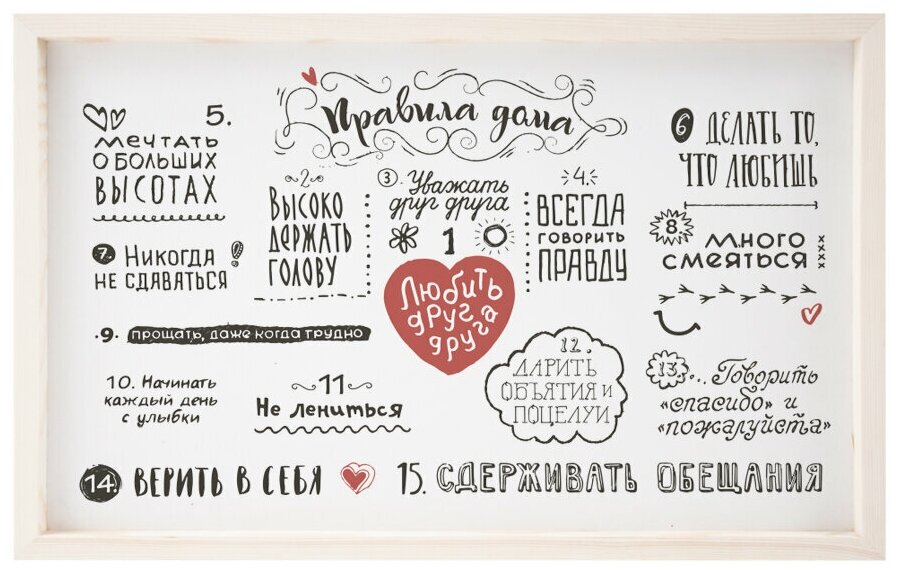 Правила дома
5.
Мечтать
о больших
высотах
2
Высоко
держать
голову
3 Уважать
друг друга
1
Любить
друг
друга
4.
Всегда
говорить
правду
6 Делать то,
что любишь
7. Никогда
не сдаваться!
8. Много
смеяться
.9. прощать, даже когда трудно
10. Начинать
каждый день
с улыбки
11
Не лениться
12.
Дарить
объятия и
поцелуи
13... Говорить
«спасибо» и
«пожалуйста»
14. Верить в себя
15. Сдерживать обещания